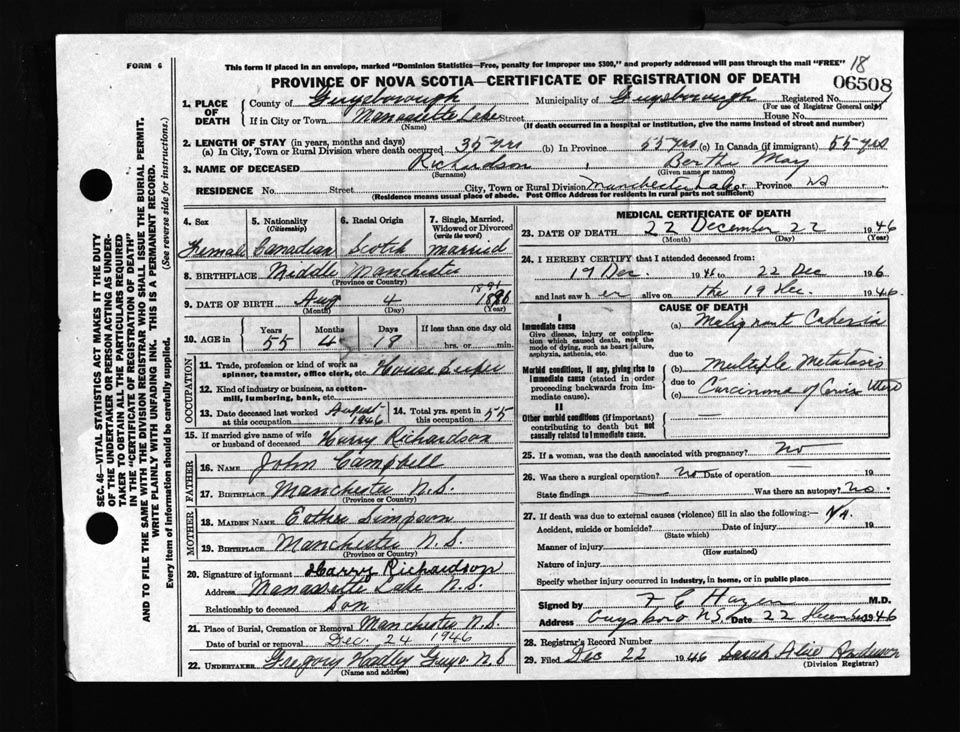 FORM 6
This form if placed in an envelope, marked "Dominion Statistics—Free, penalty for improper use $300," and properly addressed will pass through the mail "FREE" 18
PROVINCE OF NOVA SCOTIA—CERTIFICATE OF REGISTRATION OF DEATH 06508
SEC. 46—VITAL STATISTICS ACT MAKES IT THE DUTY
OF THE UNDERTAKER OR PERSON ACTING AS UNDER-
TAKER TO OBTAIN ALL THE PARTICULARS REQUIRED
IN THE "CERTIFICATE OF REGISTRATION OF DEATH"
AND TO FILE THE SAME WITH THE DIVISION REGISTRAR WHO SHALL ISSUE THE BURIAL PERMIT.
WRITE PLAINLY WITH UNFADING INK. THIS IS A PERMANENT RECORD.
Every item of information should be carefully supplied. (See reverse side for instructions.)
1. PLACE OF DEATH County of Guysborough Municipality of Guysborough Registered No.
(For use of Registrar General only)
If in City or Town Manassette Lake Street House No.
(Name) (If death occurred in a hospital or institution, give the name instead of street and number)
2. LENGTH OF STAY (in years, months and days)
(a) In City, Town or Rural Division where death occurred 35 yrs (b) In Province 55 yrs (c) In Canada (if immigrant) 55 yrs
3. NAME OF DECEASED Richardson Bertha May
(Surname) (Given name or names)
RESIDENCE No. Street City, Town or Rural Division Province NS
(Residence means usual place of abode. Post Office Address for residents in rural parts not sufficient)
4. Sex 5. Nationality (Citizenship) 6. Racial Origin 7. Single, Married, Widowed or Divorced (write the word)
Female Canadian Scotch married
8. BIRTHPLACE Middle Manchester
(Province or Country)
9. DATE OF BIRTH Aug 4 1891
(Month) (Day) (Year)
10. AGE in Years Months Days If less than one day old
55 4 18 hrs. or min.
OCCUPATION
11. Trade, profession or kind of work as spinner, teamster, office clerk, etc. House keeper
12. Kind of industry or business, as cotton-mill, lumbering, bank, etc.
13. Date deceased last worked at this occupation August 1946 14. Total yrs. spent in this occupation 55
15. If married give name of wife or husband of deceased Harry Richardson
FATHER
16. NAME John Campbell
17. BIRTHPLACE Manchester N.S.
(Province or Country)
MOTHER
18. MAIDEN NAME Esther Simpson
19. BIRTHPLACE Manchester N.S.
(Province or Country)
20. Signature of informant Harry Richardson
Address Manassette Lake N.S.
Relationship to deceased son
21. Place of Burial, Cremation or Removal Manchester N.S.
Date of burial or removal Dec. 24 1946
22. UNDERTAKER Gregory Guys. N.S
(Name and address)
MEDICAL CERTIFICATE OF DEATH
23. DATE OF DEATH 22 December 22 1946
(Month) (Day) (Year)
24. I HEREBY CERTIFY that I attended deceased from:
19 Dec. 1946 to 22 Dec 1946
and last saw her alive on the 19 Dec. 1946.
CAUSE OF DEATH
I
Immediate cause (a) Malignant
Give disease, injury or complication which caused death, not the mode of dying, such as heart failure, asphyxia, asthenia, etc.
due to
Morbid conditions, if any, giving rise to immediate cause (stated in order proceeding backwards from immediate cause) (b) Multiple Metastasis
due to
(c) Carcinoma of
II
Other morbid conditions (if important) contributing to death but not causally related to immediate cause —
25. If a woman, was the death associated with pregnancy? no
26. Was there a surgical operation? no Date of operation — 19
State findings — Was there an autopsy? no.
27. If death was due to external causes (violence) fill in also the following:—
Accident, suicide or homicide? Date of injury 19
(State which)
Manner of injury
(How sustained)
Nature of injury
Specify whether injury occurred in industry, in home, or in public place
Signed by F C Hazen M.D.
Address Guysboro N.S. Date 22 December 1946
28. Registrar's Record Number
29. Filed Dec 22 1946 Sarah Alice Anderson
(Division Registrar)